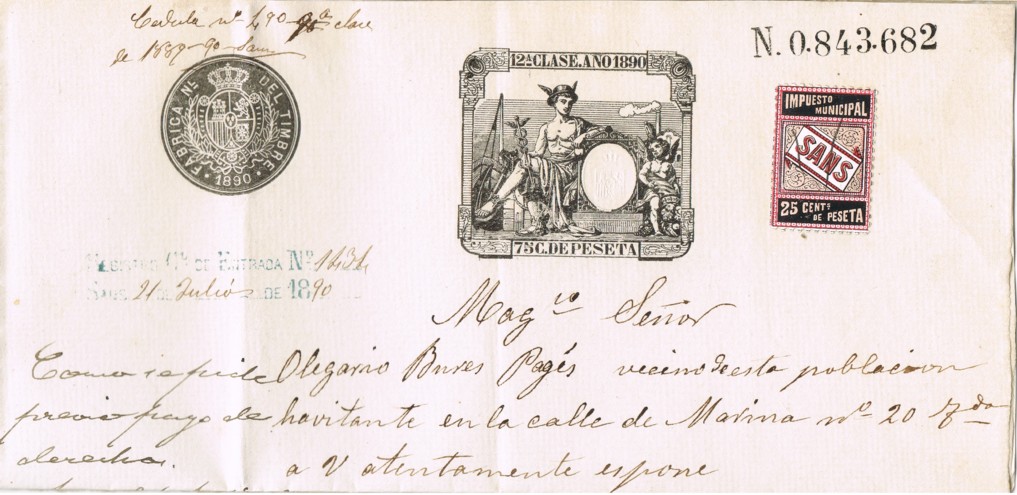 Cedula nº 490-9ª clase
de 1889-90-Sans
N. 0.843.682
FABRICA NL. DEL TIMBRE
1890
12ª CLASE. AÑO 1890
75 C. DE PESETA
IMPUESTO
MUNICIPAL
SANS
25 CENTS
DE PESETA
REGISTRO Gl. DE ENTRADA Nº 1434
SANS 21 DE Julio DE 1890
Magco Señor
Como se pide
previo pago de
derechos.
Olegario Bures Pagés vecino de esta poblacion
havitante en la calle de Marina nº 20
a V atentamente espone